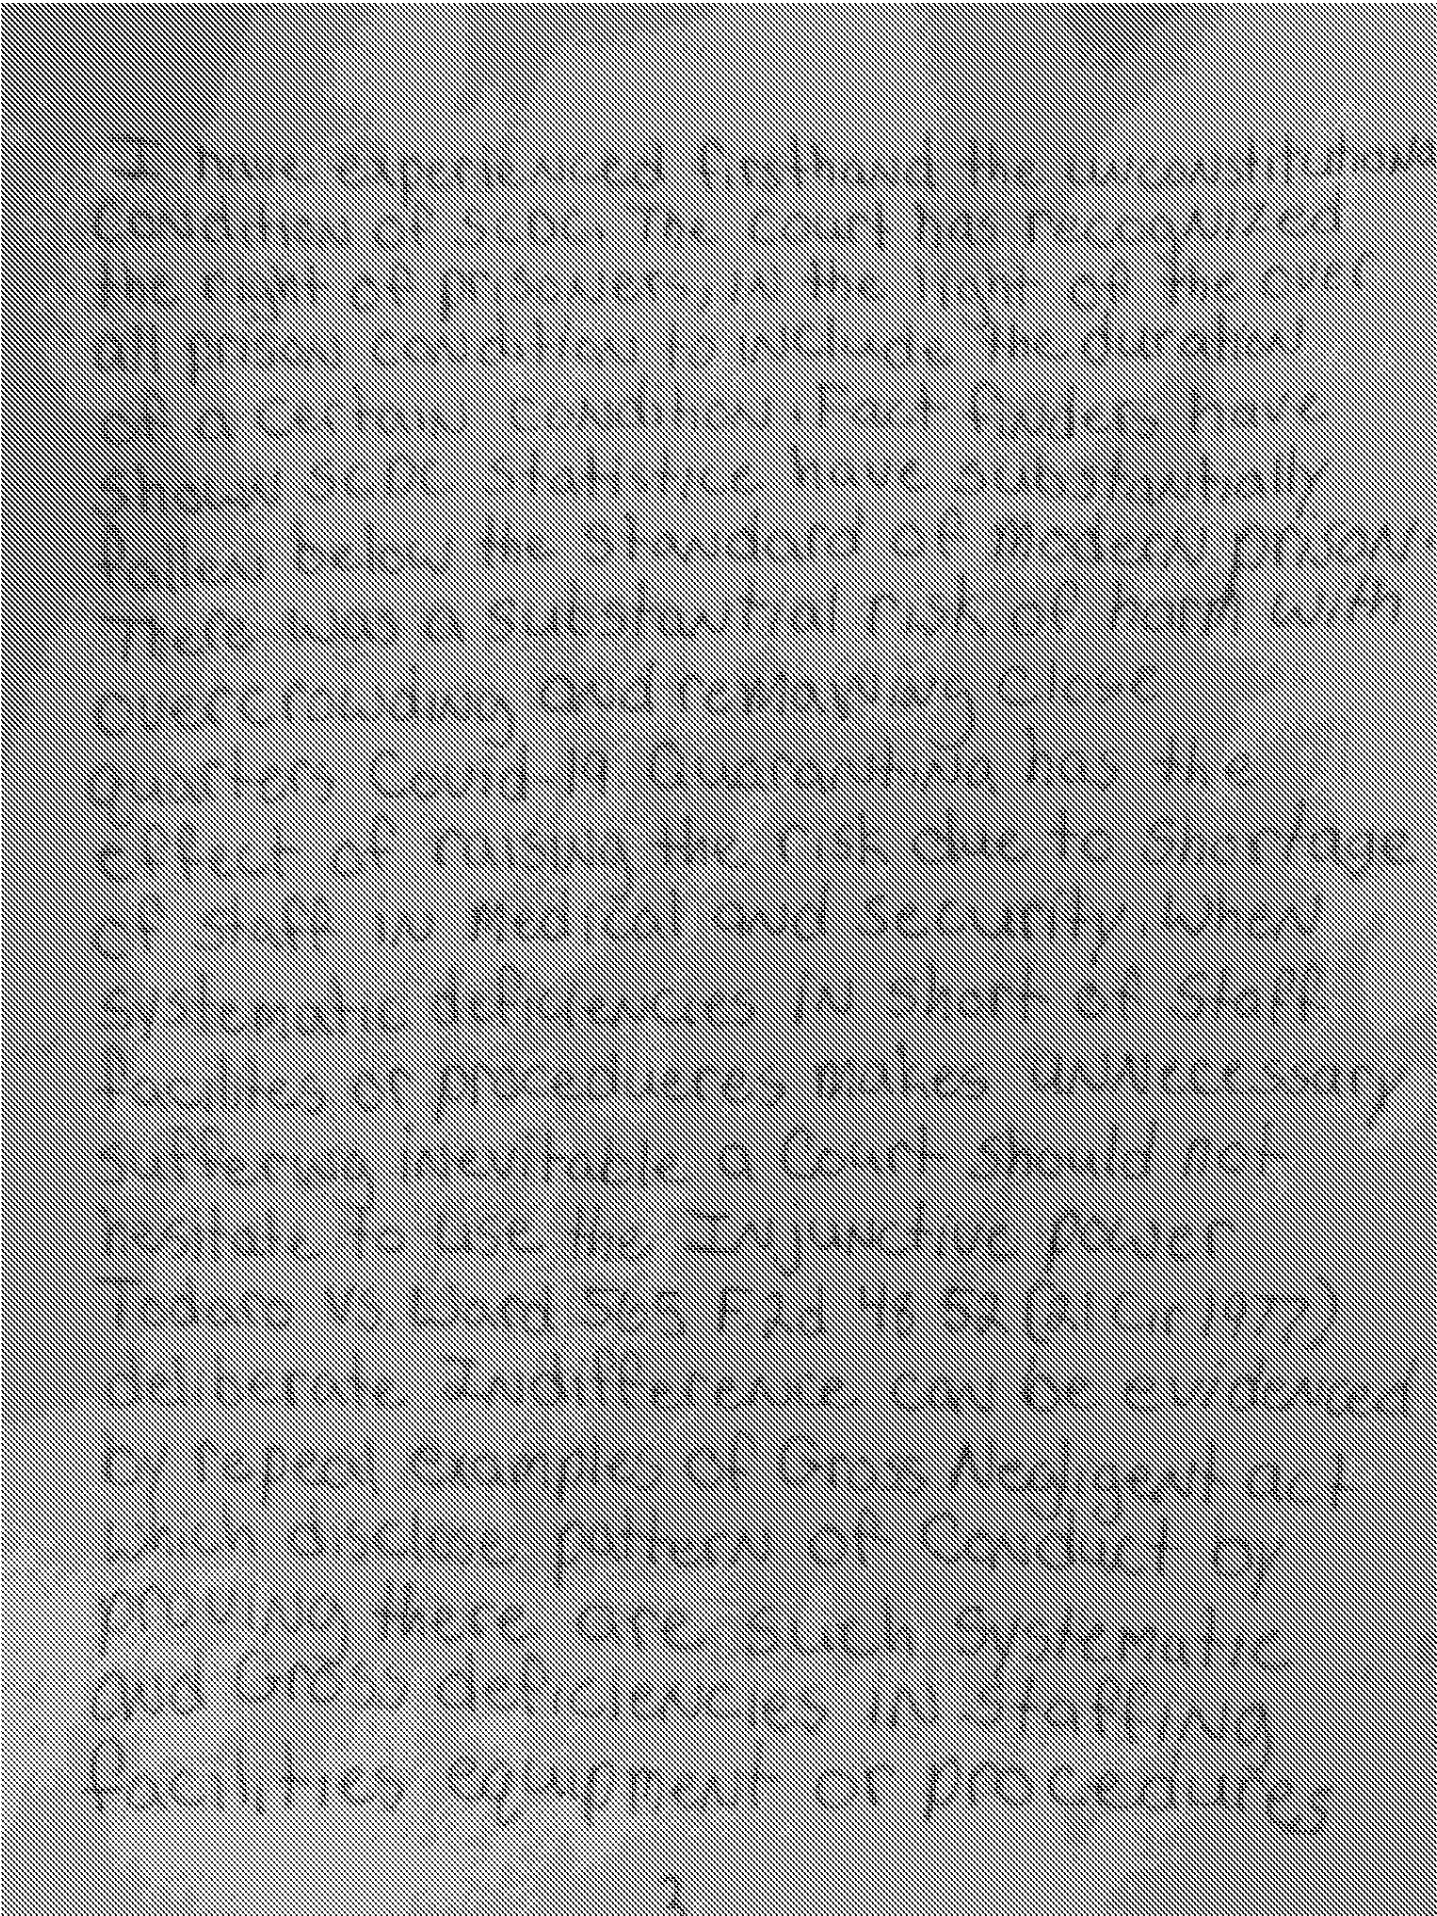 I have experienced firsthand the unconstitutional
Conditions of SCDC. The Court have recognized
the right of prisoners in the light of the over
all prison conditions to include the duration
of a certain condition. Past Rulers have
SCDC Statistics have substantially
below the standard of Medical, prison
There was a substantial risk of harm with
overcrowding and remaining close
quarters. Covid 19 Quarantine has the
effect of raising the risk due to shortage
of staff is Medical and Security, when
Systematic deficiencies in short of Staff
Facilities, or procedures, makes unnecessary
suffering inevitable, a Court should not
hesitate to use the Injunctive power
Todaro vs Ward 565 F.2d 48, 52 (2d Cir. 1977)
Deliberate Indifference can be evidenced
by repeat examples of Gross Negligent act
which disclose patterns of Conduct by
proving there are such Systematic
and Gross deficiencies in Staffing
Facilities, Equipment or procedures
2